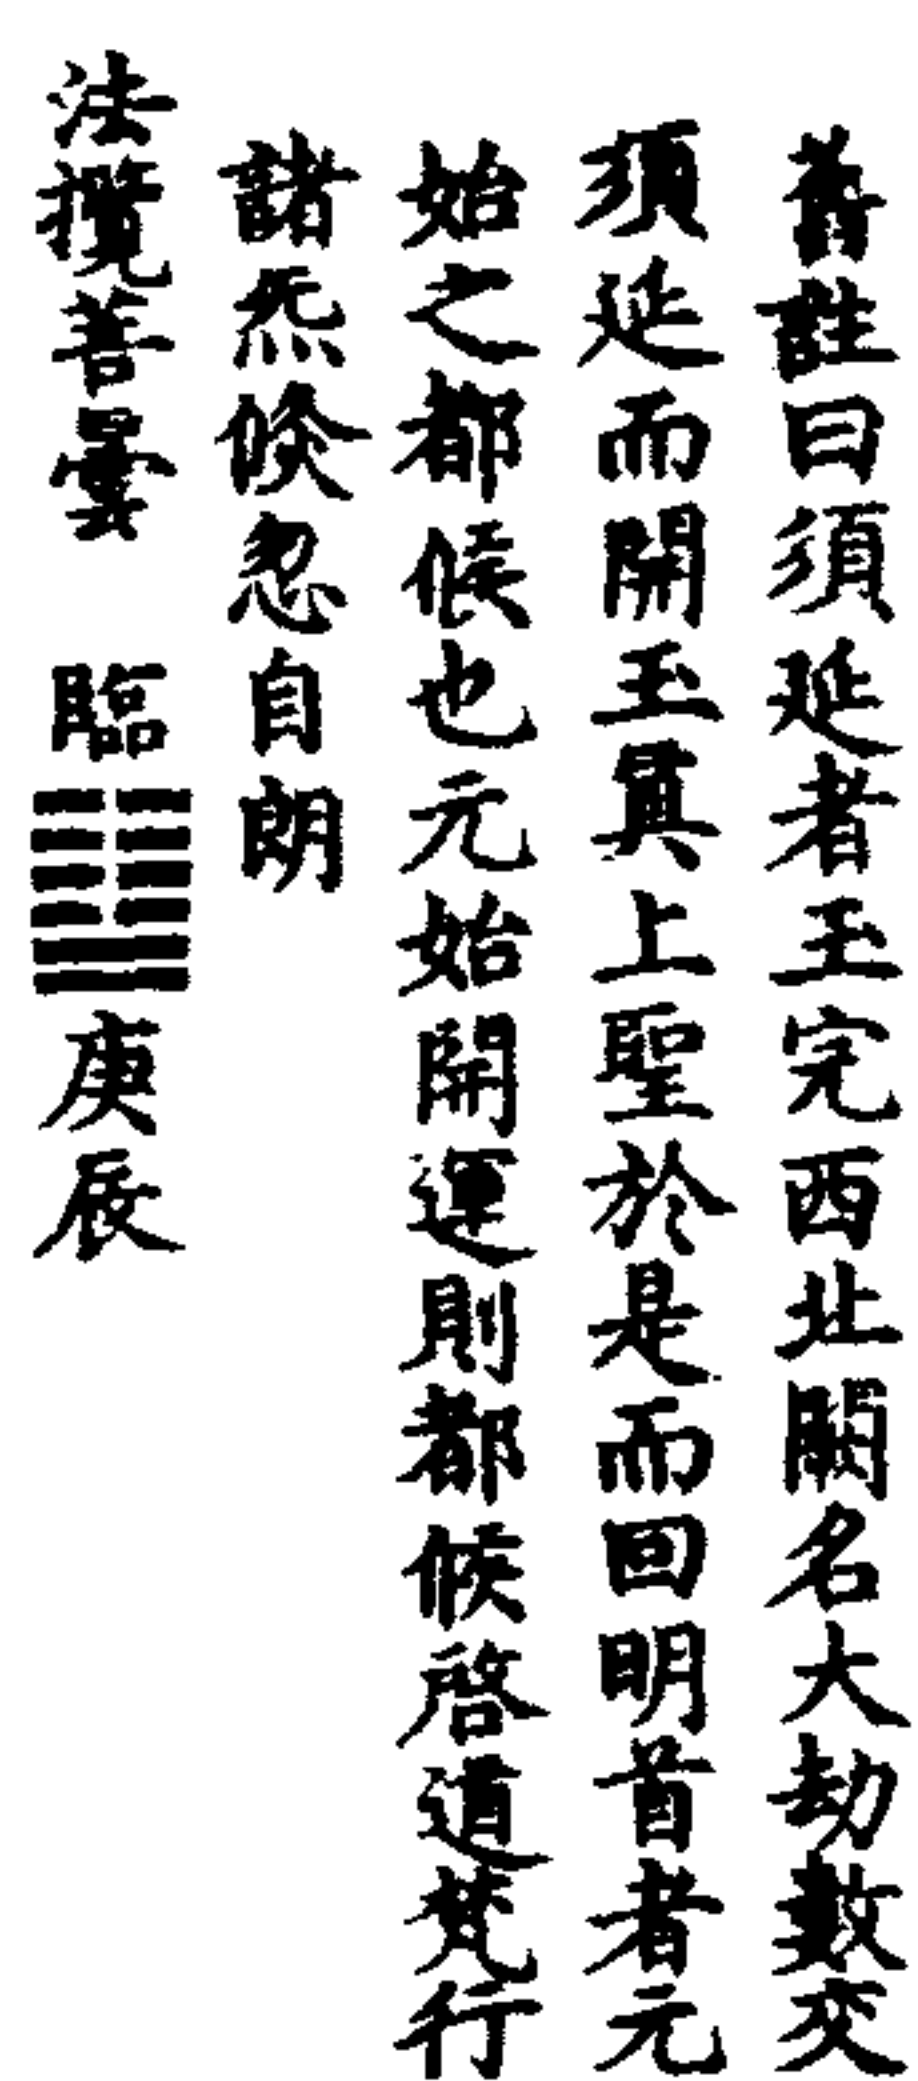 舊註曰須延者玉完西北闕名大劫數交
須延而開玉真上聖於是而回明首者元
始之都候也元始開運則都候啓道梵行
諸炁倏忽自朗
法攬善曇　臨䷒庚辰